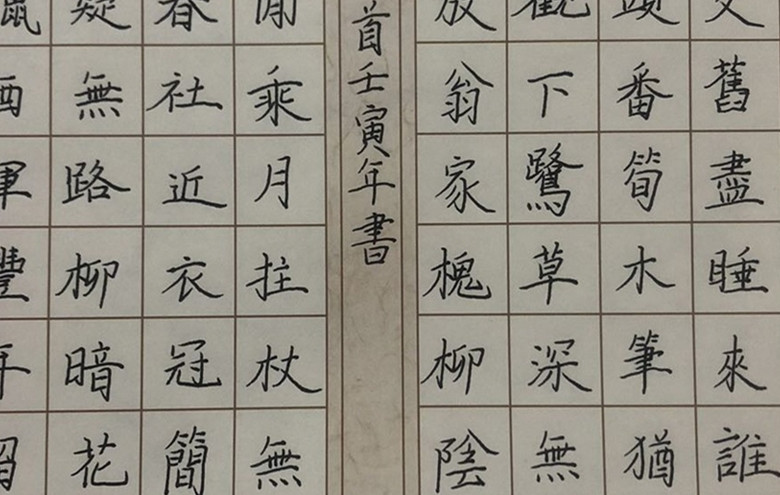 交舊盡睡來誰
頭番筍木筆猶
觀下鷺草深無
放翁家槐柳陰
首壬寅年書
閒乘月拄杖無
春社近衣冠簡
疑無路柳暗花
臘酒渾豐年留